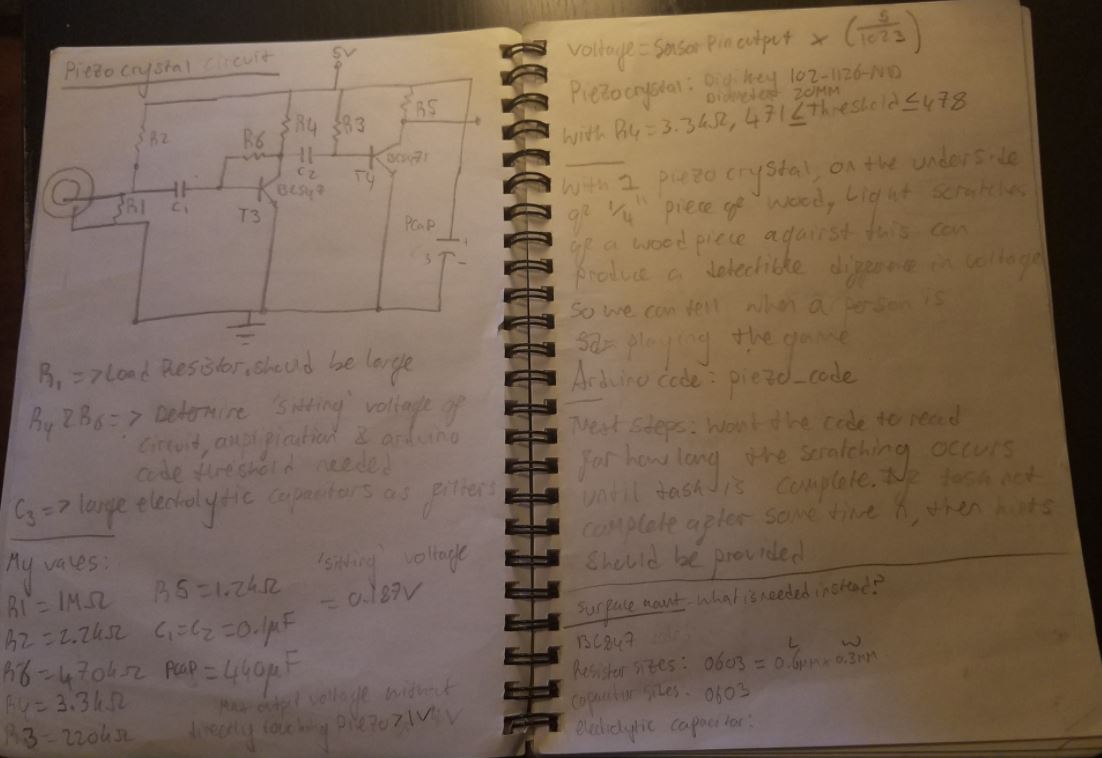 Piezo crystal circuit
5V
R2
R6
R4
R3
R5
C2
BC547
T4
R1
C1
BC547
T3
PCAP
+
C3
-
R1 => Load Resistor, should be large
R4 & R6 => Determine 'sitting' voltage of
circuit, amplification & arduino
code threshold needed
C3 => large electrolytic capacitors as filters
My values:
'sitting' voltage
= 0.187V
R1 = 1MΩ
R5 = 1.2kΩ
R2 = 2.2kΩ
C1 = C2 = 0.1µF
R6 = 470kΩ
PCAP = 440µF
R4 = 3.3kΩ
R3 = 220kΩ
Max output voltage without
directly touching Piezo > 1V
voltage = Sensor Pin output × (5/1023)
Piezo crystal: Digikey 102-1126-ND
Diameter 20MM
with R4 = 3.3kΩ, 471 ≤ Threshold ≤ 478
With 1 piezo crystal, on the underside
of 1/4" piece of wood, Light scratches
of a wood piece against this can
produce a detectible difference in voltage
so we can tell when a person is
playing the game
Arduino code: piezo_code
Next steps: want the code to read
for how long the scratching occurs
until task is complete. If task not
complete after some time n, then hints
should be provided
Surface mount - what is needed instead?
BC847
L W
Resistor sizes: 0603 = 0.6MM x 0.3MM
capacitor sizes: 0603
electrolytic capacitor: